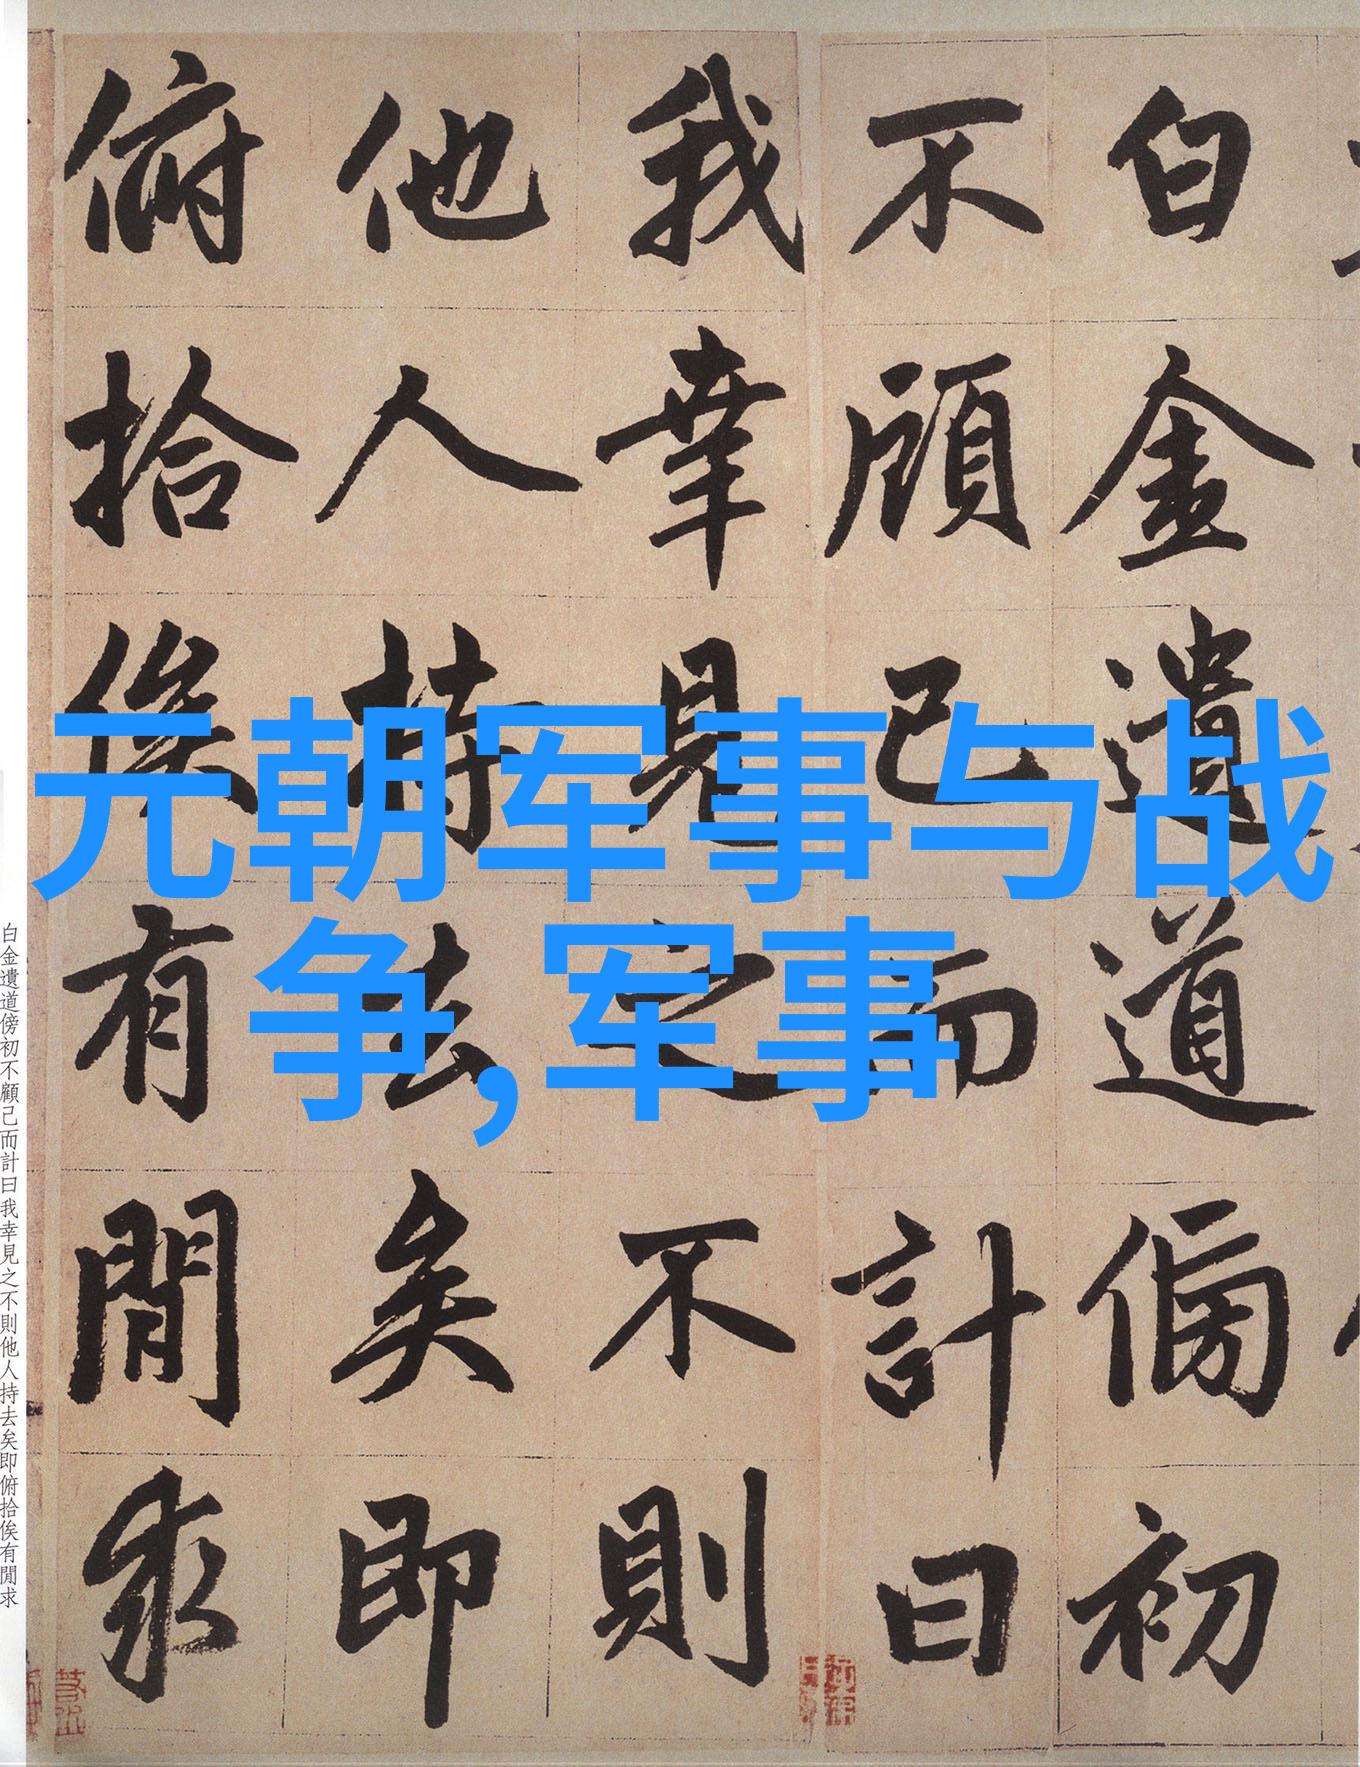 元朝军事与战
争,军事
白金遺道傍初
不顧己而計曰
我幸見之不則
他人持去矣即
俯拾俟有閒求
白金遺道傍初不顧己而計曰我幸見之不則他人持去矣即俯拾俟有閒求